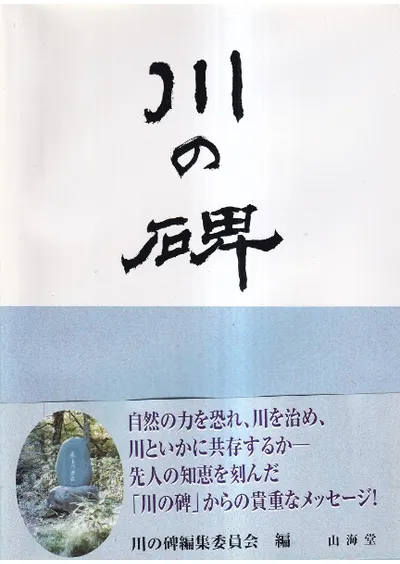 川
の
碑
自然の力を恐れ、川を治め、
川といかに共存するか―
先人の知恵を刻んだ
「川の碑」からの貴重なメッセージ!
川の碑編集委員会 編 山海堂